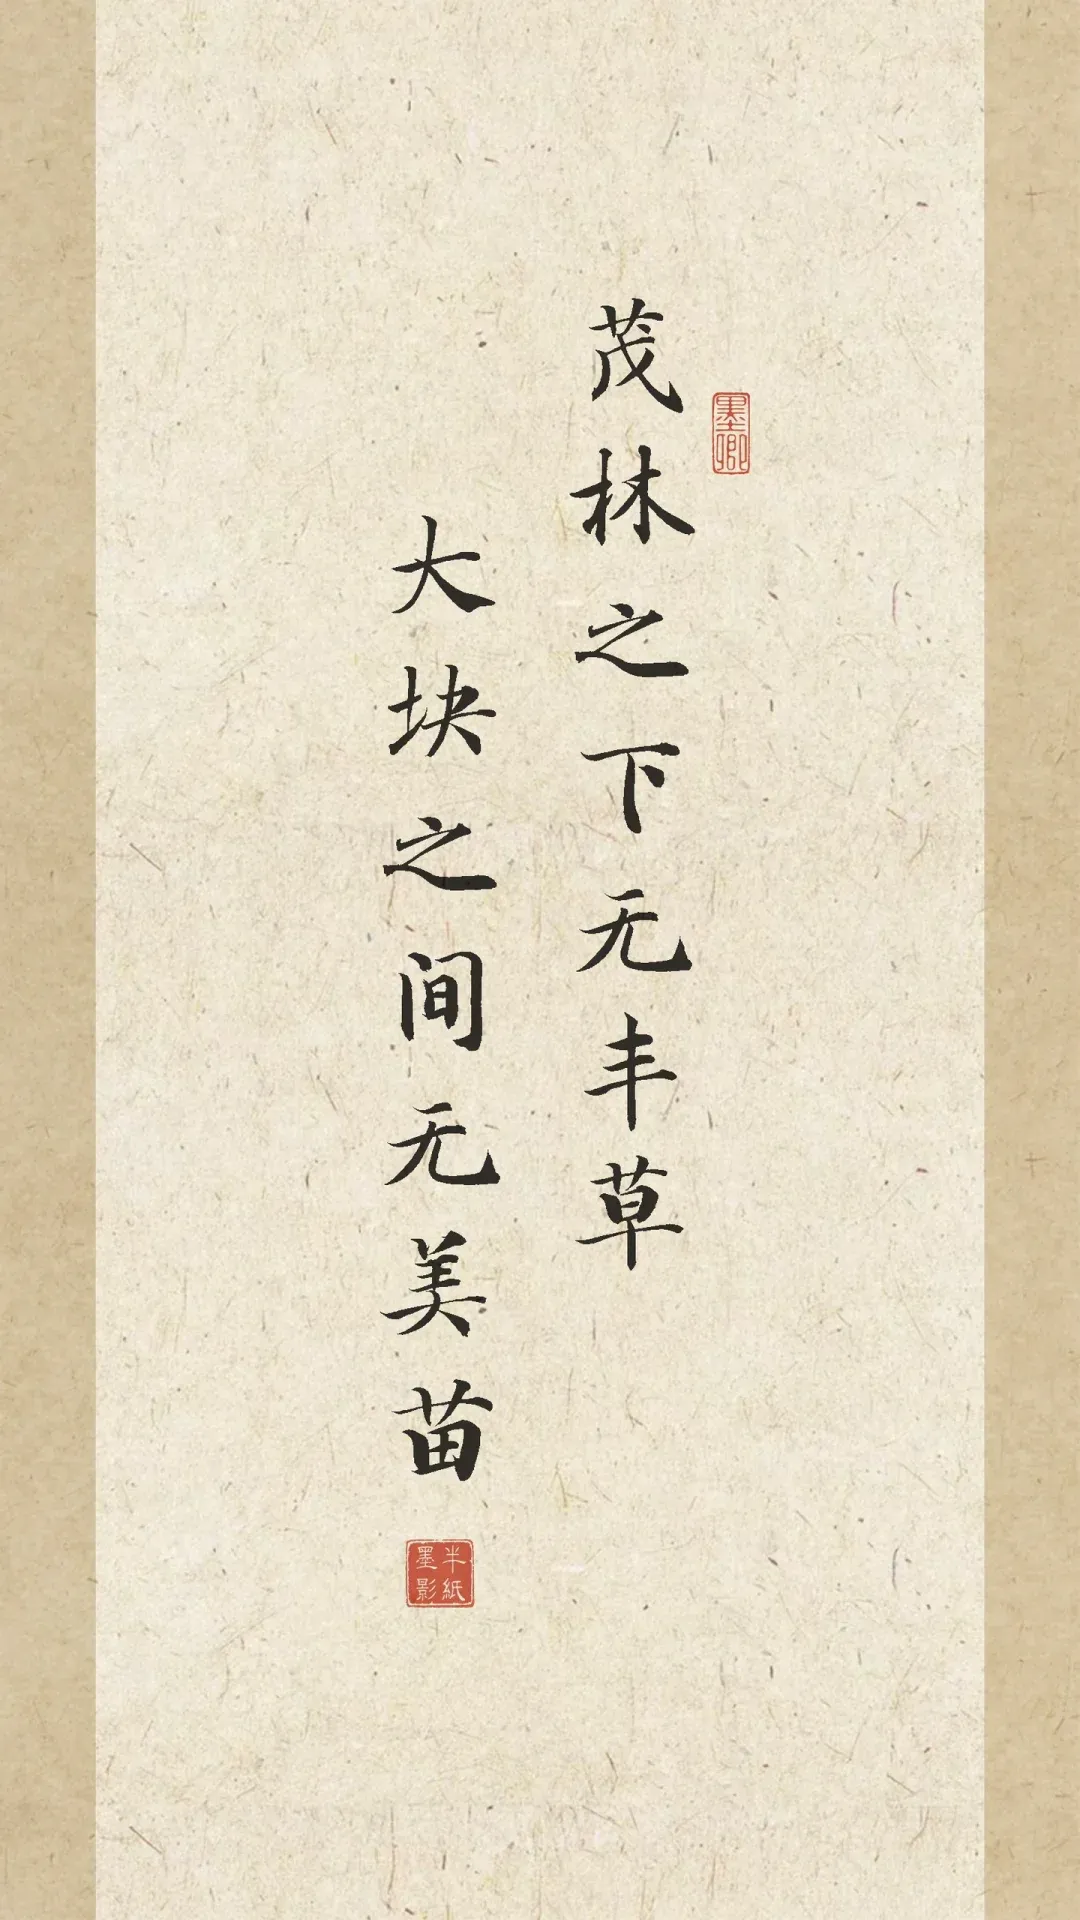 茂林之下无丰草
大块之间无美苗
墨卿
半纸墨影